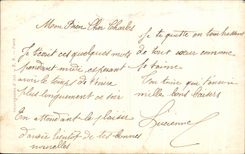 Mon Bien Cher Charles
Je t'écris ces quelques mots
pendant midi, espérant
avoir le temps de t'écrire
plus longuement ce soir
En attendant le plaisir
d'avoir bientôt de tes bonnes
nouvelles
je te quitte en
de tout cœur comme
je t'aime
Ton amie qui t'envoie
mille bons baisers
Lucienne